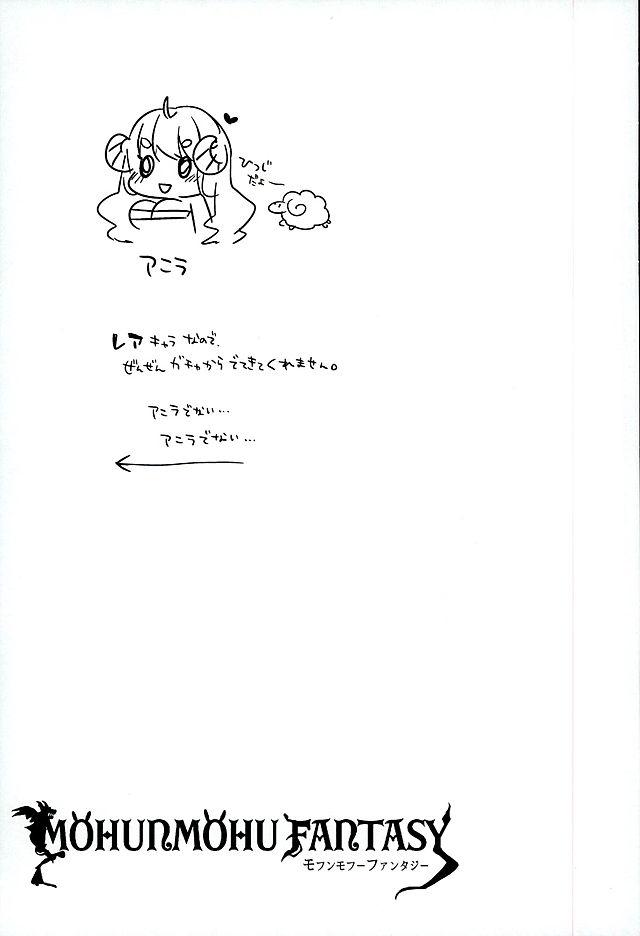 ひつじ
だよー
アニラ
レアキャラなので、
ぜんぜんガチャからでてきてくれません。
アニラでない…
アニラでない…
MOHUNMOHU FANTASY
モフンモフーファンタジー